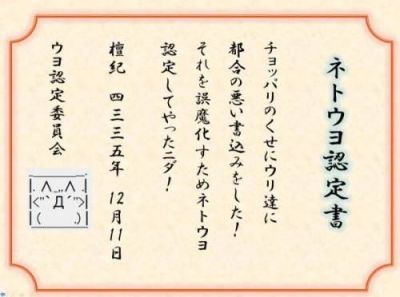 ネトウヨ認定書
チョッパリのくせにウリ達に
都合の悪い書込みをした！
それを誤魔化すためネトウヨ
認定してやったニダ！
檀紀 四三三五年 12月11日
ウヨ認定委員会
|. ∧_,,∧ .|
|<"`Д´">|
| (　　.) |